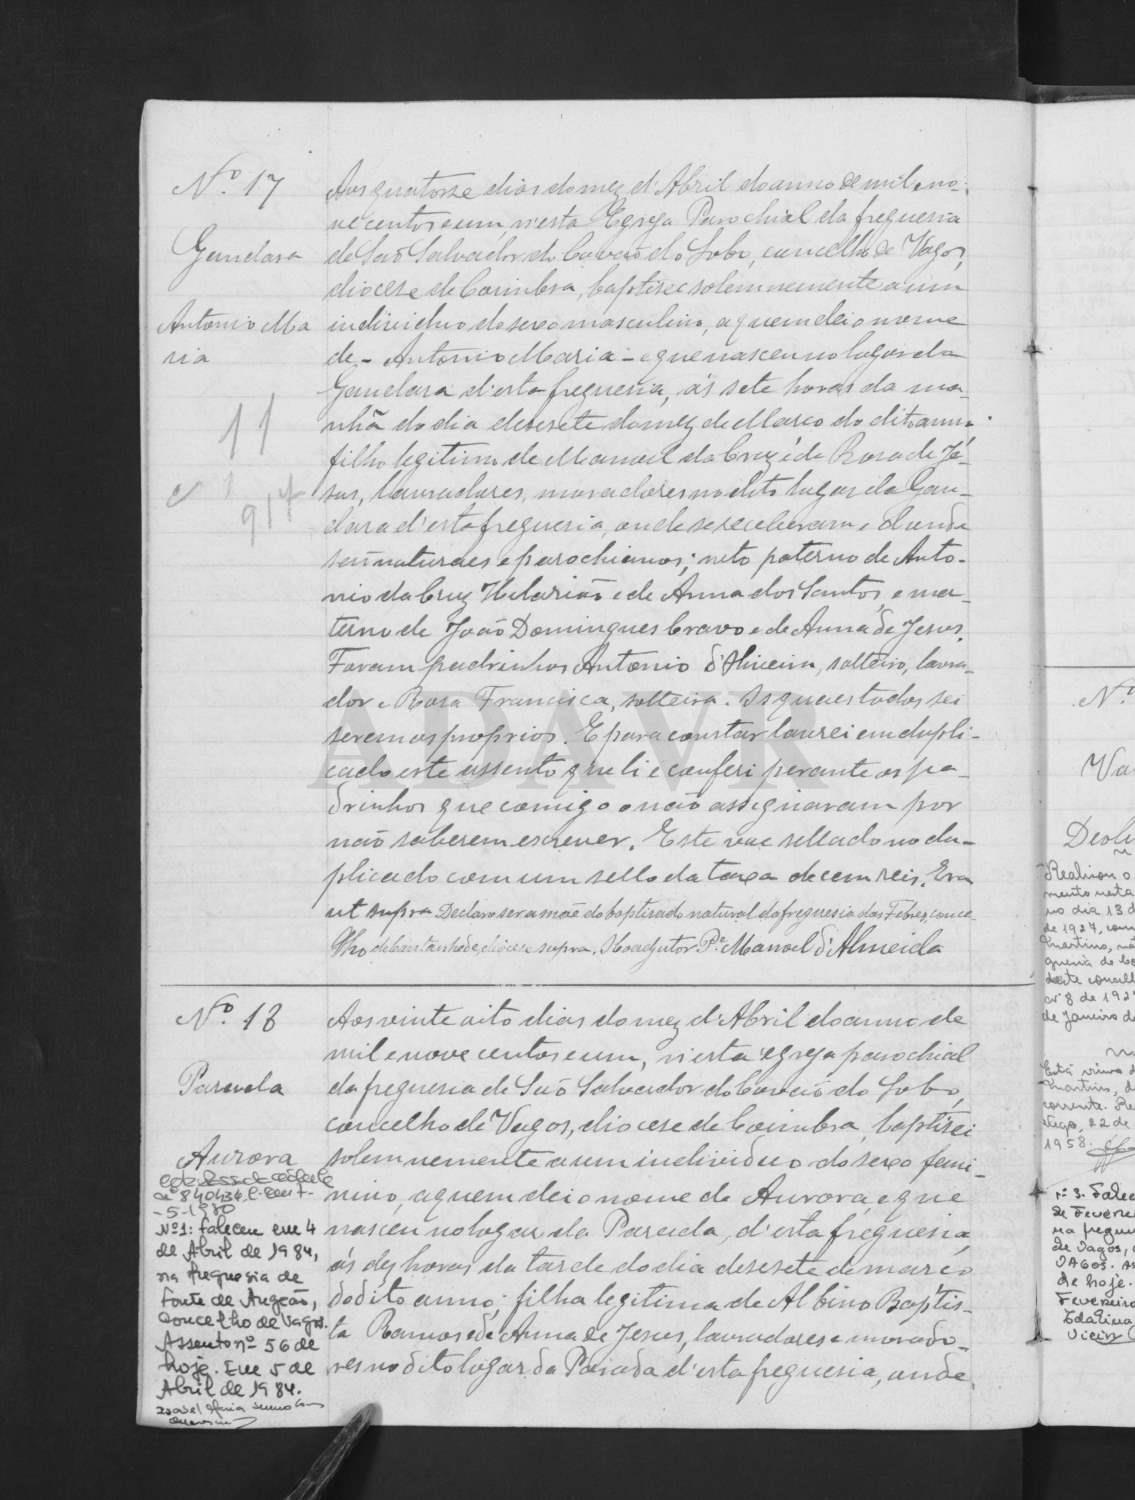 Nº 17
Gandara
Antonio Ma
ria
11
917
Aos quatorze dias do mez d'Abril do anno de mil e no-
ve centos e um, n'esta Egreja Parochial da freguesia
de São Salvador do Covão do Lobo, concelho de Vagos,
diocese de Coimbra, baptisei solemnemente a um
individuo do sexo masculino, a quem dei o nome
de - Antonio Maria - e que nasceu no lugar da
Gandara d'esta freguesia, ás sete horas da ma-
nhã do dia desesete do mez de Março do dito anno
filho legitimo de Manoel da Cruz e de Rosa de Je-
sus, lavradores, moradores no dito lugar da Gan-
dara d'esta freguesia, onde se receberam e d'onde
são naturaes e parochianos; neto paterno de Anto-
nio da Cruz Hilarião e de Anna dos Santos, e ma-
terno de João Domingues Cravo e de Anna de Jesus.
Foram padrinhos Antonio d'Oliveira, solteiro, lavra-
dor e Rosa Francisca, solteira. Os quaes todos sei
serem os proprios. E para constar lavrei em dupli-
cado este assento que li e conferi perante os pa-
drinhos que comigo o não assignaram por
não saberem escrever. Este vae sellado no du-
plicado com um sello da taxa de cem reis. Era
ut supra Declaro ser a mãe do baptisado natural da freguesia das Febres, conce
lho de Cantanhede, diocese supra. O Coadjutor Pe Manoel d'Almeida
Nº 18
Parada
Aurora
nº 840434
-5-1980
Nº1: Faleceu em 4
de Abril de 1984,
na freguesia de
Fonte de Angeão,
concelho de Vagos.
Assento nº 56 de
hoje. Em 5 de
Abril de 1984.
Aos vinte oito dias do mez d'Abril do anno de
mil e nove centos e um, n'esta egreja parochial
da freguesia de São Salvador do Covão do Lobo,
concelho de Vagos, diocese de Coimbra, baptisei
solemnemente a um individuo do sexo femi-
nino, a quem dei o nome de Aurora, e que
nasceu no lugar da Parada, d'esta freguesia,
ás dez horas da tarde do dia desesete de março
do dito anno; filha legitima de Albino Baptis-
ta Ramos e de Anna de Jesus, lavradores e morado-
res no dito lugar da Parada d'esta freguesia, onde
ADAVR
Nº
Va
Deoli
Realizou o
mento nesta
no dia 13 d
de 1927, com
Martins, na
guesia de Co
deste concelh
nº 8 de 192
de Janeiro d
Está viuva d
Martins, d
corrente.
22 de
1958.
nº 3. Falec
de Feverei
na fregue
de Vagos,
VAGOS. As
de hoje.
Fevereiro
Idalina
Vieira